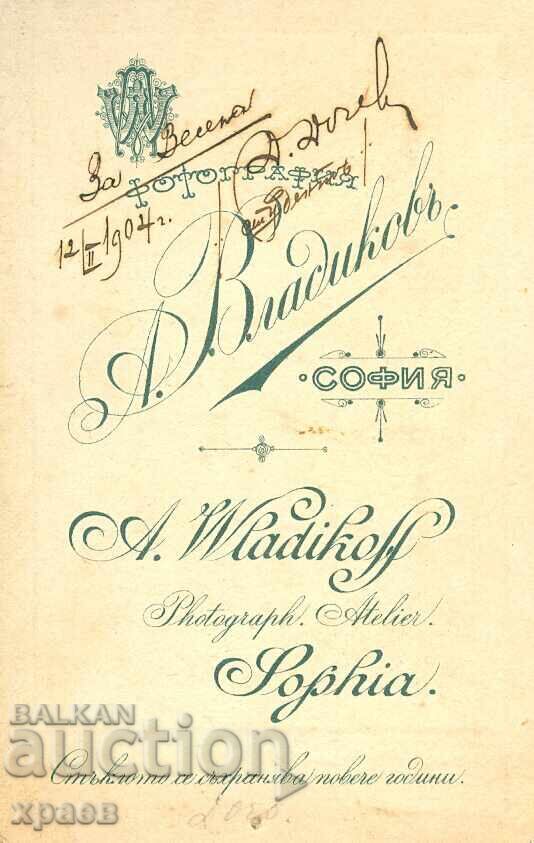 За Весела
Д. Дочев
студентъ
12/II 1904 г.
ФОТОГРАФИЯ
А. Владиковъ
·СОФИЯ·
A. Wladikoff
Photograph. Atelier.
Sophia.
BALKAN
auction
Стъклото се съхранява повече години.
храев